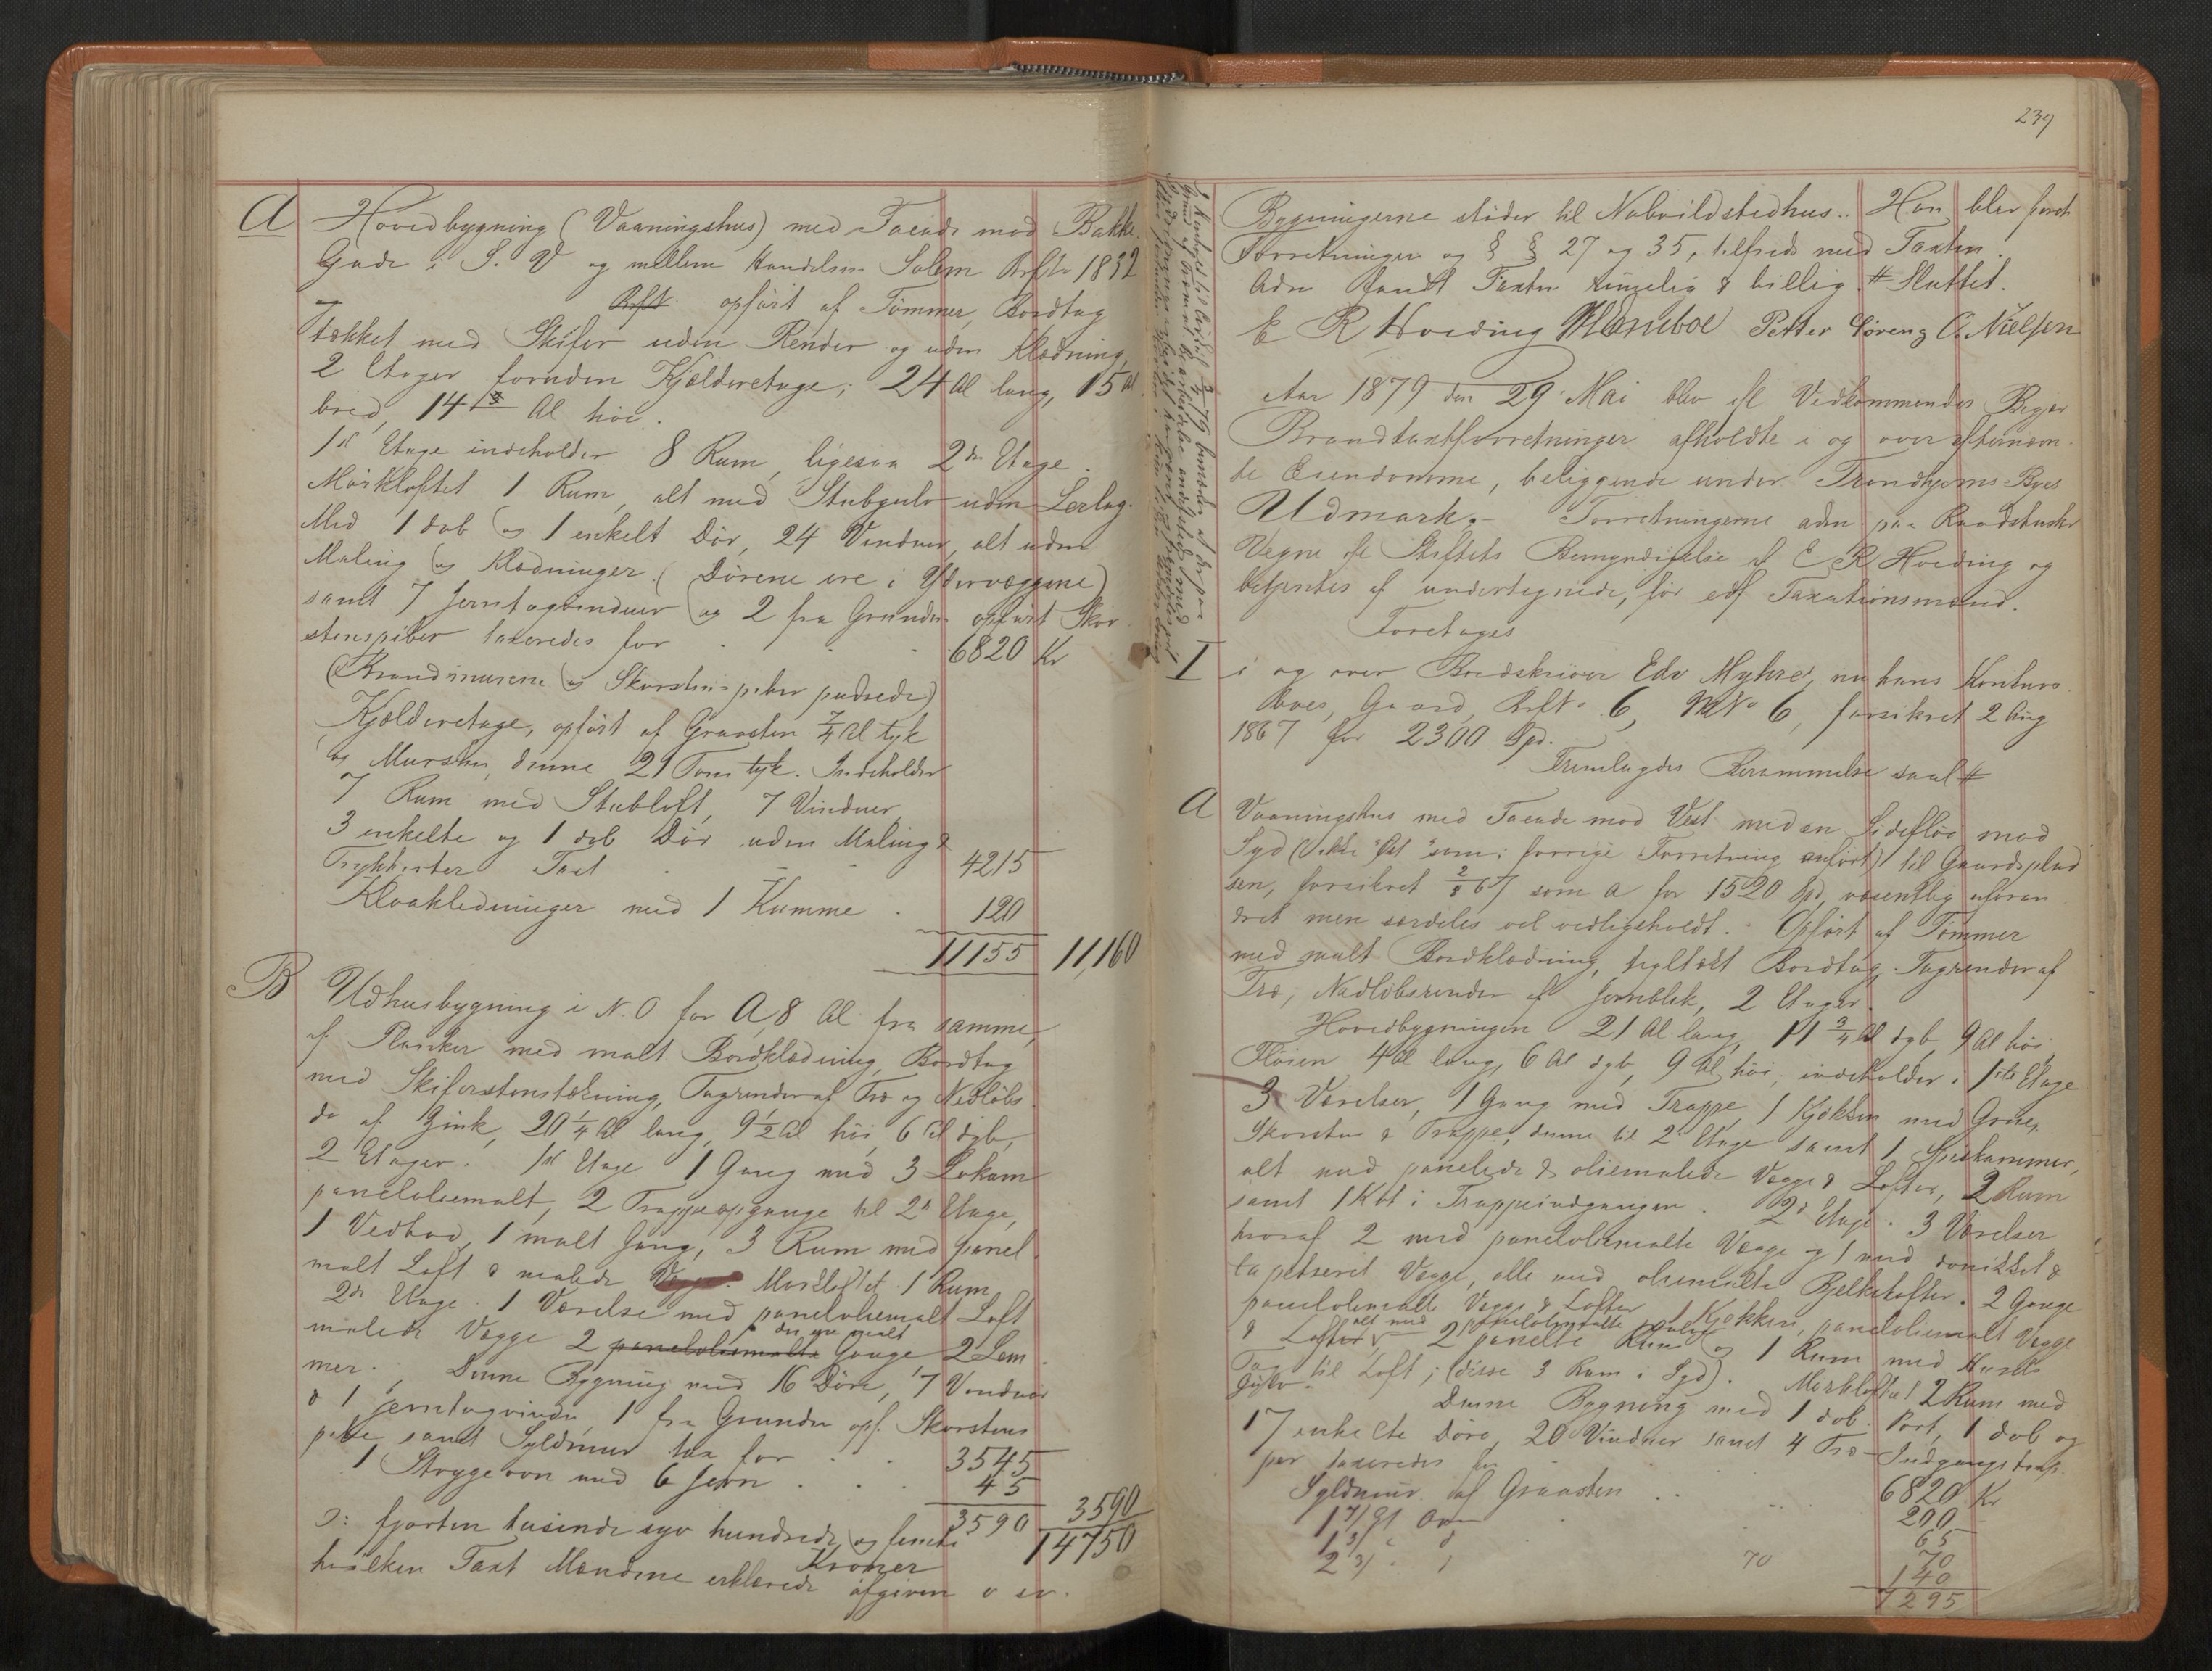 A Hovedbygning (Vaaningshus) med Facade mod Bakke
Gade i S. V og mellem Handelsm Solem Brftr 1832
og Brft. opført af Tømmer, Bordtag
tækket med Skifer uden Render og uden Klædning,
2 Etager foruden Kjælderetage; 24 Al lang, 15 Al
bred, 14 Al høi.
1st Etage indeholder 8 Rum, ligesaa 2den Etage.
Mørkloftet 1 Rum, alt med Stubgulv uden Lerlag.
Med 1 dob og 1 enkelt Dør, 24 Vinduer, alt uden
Maling og Klædninger. (Dørene ere i Ydervæggene)
samt 7 Jerntagvinduer og 2 fra Grunden opført Skor
stenspiber taxeredes for 6820 Kr
(Brandmurene og Skorstenspiber pudsede)
Kjælderetage, opført af Graasten 7/4 Al tyk
og Mursten, denne 21 Tom tyk. Indeholder
7 Rum med Stubloft, 7 Vinduer,
3 enkelte og 1 dob Dør uden Maling &
Taxt 4215
Kloakledninger med 1 Kumme . 120
11155 11,160
B Udhusbygning i N. O for A, 8 Al fra samme,
af Planker med malt Bordklædning, Bordtag
med Skiferstenstækning, Tagrender af Træ og Nedløbs
do af Zink, 20 1/4 Al lang, 9 1/2 Al høi, 6 Al dyb,
2 Etager. 1st Etage 1 Gang med 3 Lokum
paneloliemalt, 2 Trappeopgange til 2d Etage,
1 Vedbod, 1 malt Gang, 3 Rum med panel
malt Loft & malede Vægge. Mørkloftet 1 Rum
2de Etage. 1 Værelse med paneloliemalt Loft
malede Vægge 2 paneloliemalte den ene malt Gange 2 Lem
mer. Denne Bygning med 16 Døre, 7 Vinduer
& 1 Jerntagvindu, 1 fra Grunden opf. Skorstens
pibe samt Syldmur tax for 3545
1 Strygeovn med 6 Jern . . . 45
3590 3590
ↄ: fjorten tusinde syv hundrede og femti 14750
Kroner
hvilken Taxt Mændene erklærede afgiven o sv.
239
Bygningerne støder til Nabvildstedhus.. Han blev foreh
Forretninger og § § 27 og 35, tilfreds med Taxten.
Adm fandt Taxten rimelig & billig # Sluttet.
E R Hveding Petter Sørenz C. Nielsen
Aar 1879 den 29 Mai blev efl Vedkommendes Begjær
Brandtaxtforretninger afholdte i og over efternævn
te Eiendomme, beliggende under Trondhjems Byes
Udmark. – Forretningerne adm paa Raadstuens
Vegne efl Stiftets Bemyndigelse af E R Hveding og
betjentes af undertegnede, før edf Taxationsmænd.
Foretages
I i og over Bordskriver Edv Myhre, nu hans Konkurs
Boes, Gaard, Brft. 6, MNo 6, forsikret 2 Aug
1867 for 2300 Spd.
Fremlagdes Berammelse saal #
A Vaaningshus med Facade mod Vest med en Sidefløi mod
Syd (ikke Øst som i forrige Forretning anført) til Gaardsplad
sen, forsikret 2/8 67 som a for 1520 Spd, væsentlig uforan
dret men særdeles vel vedligeholdt. Opført af Tømmer
med malt Bordklædning, tegltækt Bordtag. Tagrender af
Træ, Nedløbsrender af Jernblik, 2 Etager
Hovedbygningen 21 Al lang, 11 3/4 Al dyb, 9 Al høi,
Fløien 4 Al lang, 6 Al dyb, 9 Al høi, indeholder i 1ste Etage
3 Værelser, 1 Gang med Trappe, 1 Kjøkken med Grue,
Skorsten & Trappe, denne til 2d Etage samt 1 Spiskammer,
alt med panelede & oliemalede Vægge & Lofter, 2 Rum
samt 1 Kot i Trappeindgangen. 2d Etage. 3 Værelser
hvoraf 2 med paneloliemalte Vægge og 1 med donikket &
tapetseret Vægge, alle med oliemalte Bjelkelofter. 2 Gange
paneloliemalt Vægge & Lofter 1 Kjøkken, paneloliemalt Vægge
& Lofter 2 panelte Rum og 1 Rum med Husets
Tag til Loft; (disse 3 Rum i Syd). Mørkloftet 2 Rum med
Gulv. Denne Bygning med 1 dob Port, 1 dob og
17 enkelte Døre, 20 Vinduer samt 4 Træ Indgangstrap
per taxeredes for 6820 Kr
Syldmur af Graasten . . 200
1 4/Et Ovn 65
1 3/ " d 70
2 3/ . " 70 140
7295